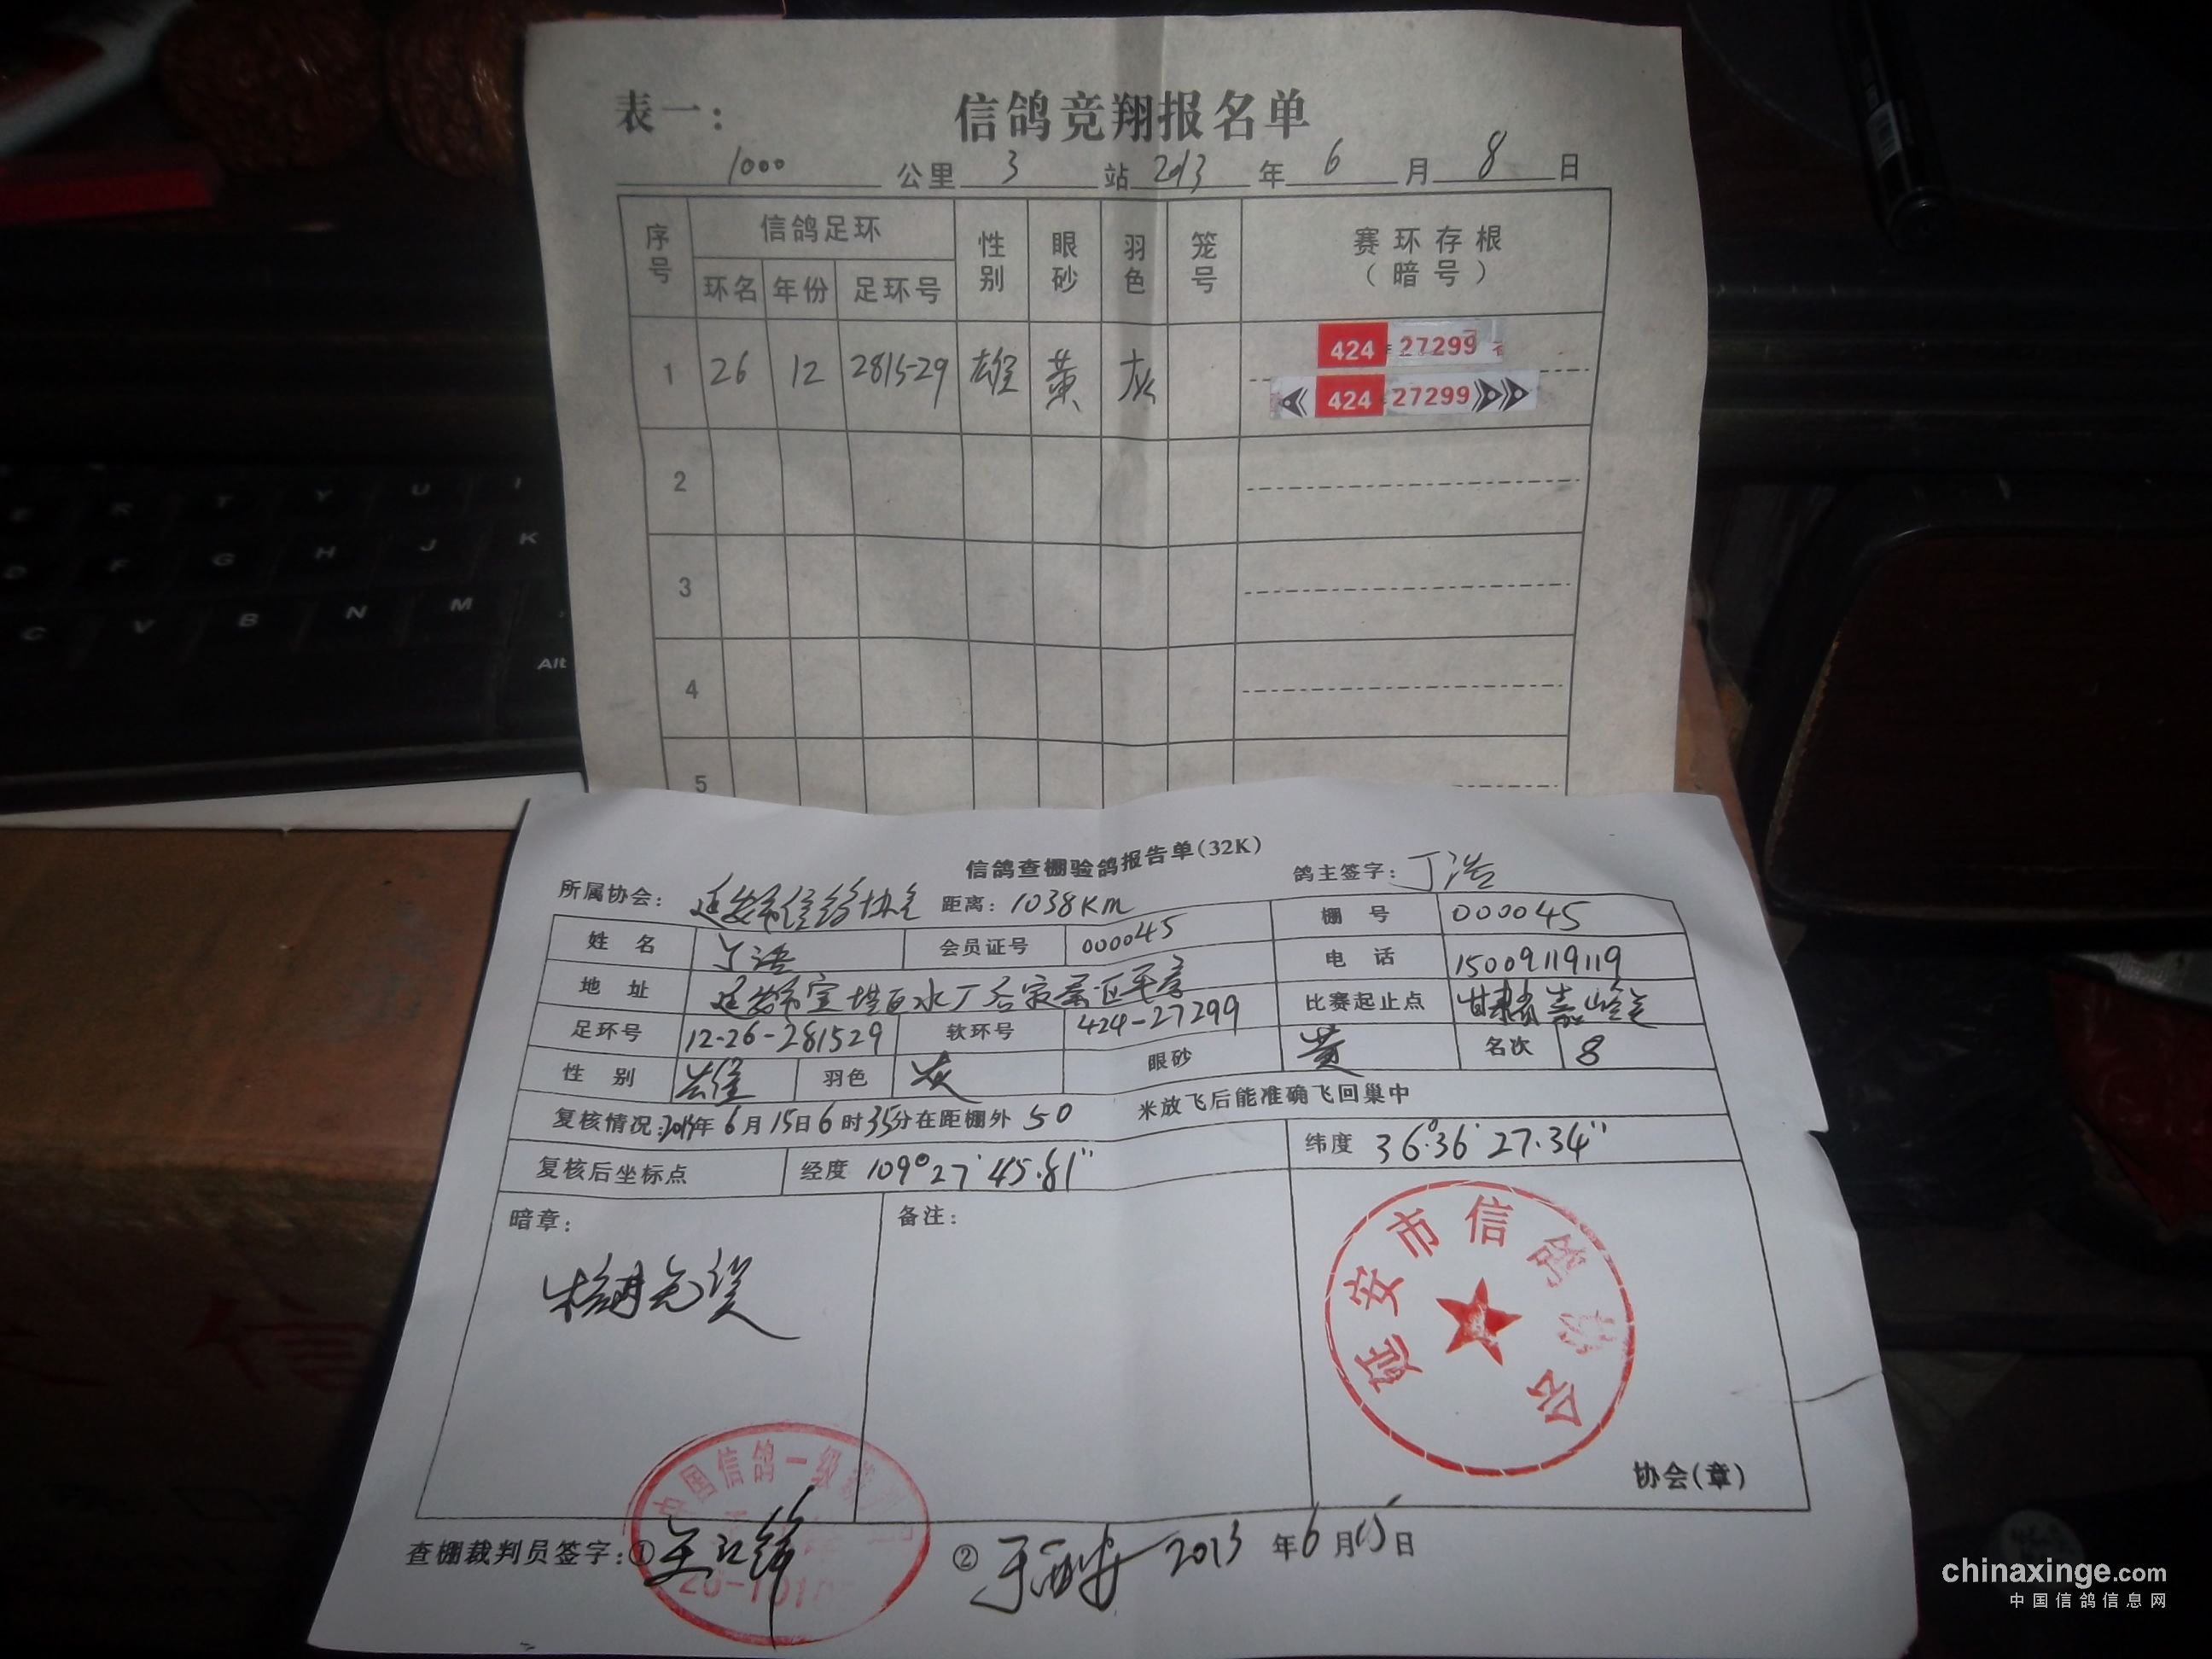 表一：
信鸽竞翔报名单
1000 公里 3 站 2013 年 6 月 8 日
序号 信鸽足环 性别 眼砂 羽色 笼号 赛环存根
（暗号）
环名 年份 足环号
424 27299
1 26 12 2815-29 雄 黄 灰
424 27299
2
3
4
5
信鸽查棚验鸽报告单(32K)
所属协会： 延安市信鸽协会 距离：1038KM 鸽主签字：丁浩
姓名 丁浩 会员证号 000045 棚号 000045
地址 延安市宝塔区水厂 电话 15009119119
足环号 12-26-281529 软环号 424-27299 比赛起止点 甘肃省嘉峪关
性别 雄 羽色 灰 眼砂 黄 名次 8
复核情况： 年 6 月 15 日 6 时 35 分在距棚外 50 米放飞后能准确飞回巢中
复核后坐标点 经度 109°27′45.81″ 纬度 36°36′27.34″
暗章： 备注：
核对无误
延安市信鸽协会
协会(章)
中国信鸽一级裁
查棚裁判员签字：① ② 2013 年 6 月 15 日
E R T Y U I
D F G H J K
C V B N M
Alt
chinaxinge.com
中国信鸽信息网